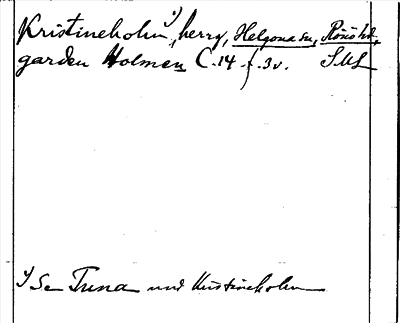 Kristineholm ¹), herrg, Helgona sn, Rönö hd,
garden Holmen C.14 f.3v. SML
¹) Se Tuna und Kristineholm